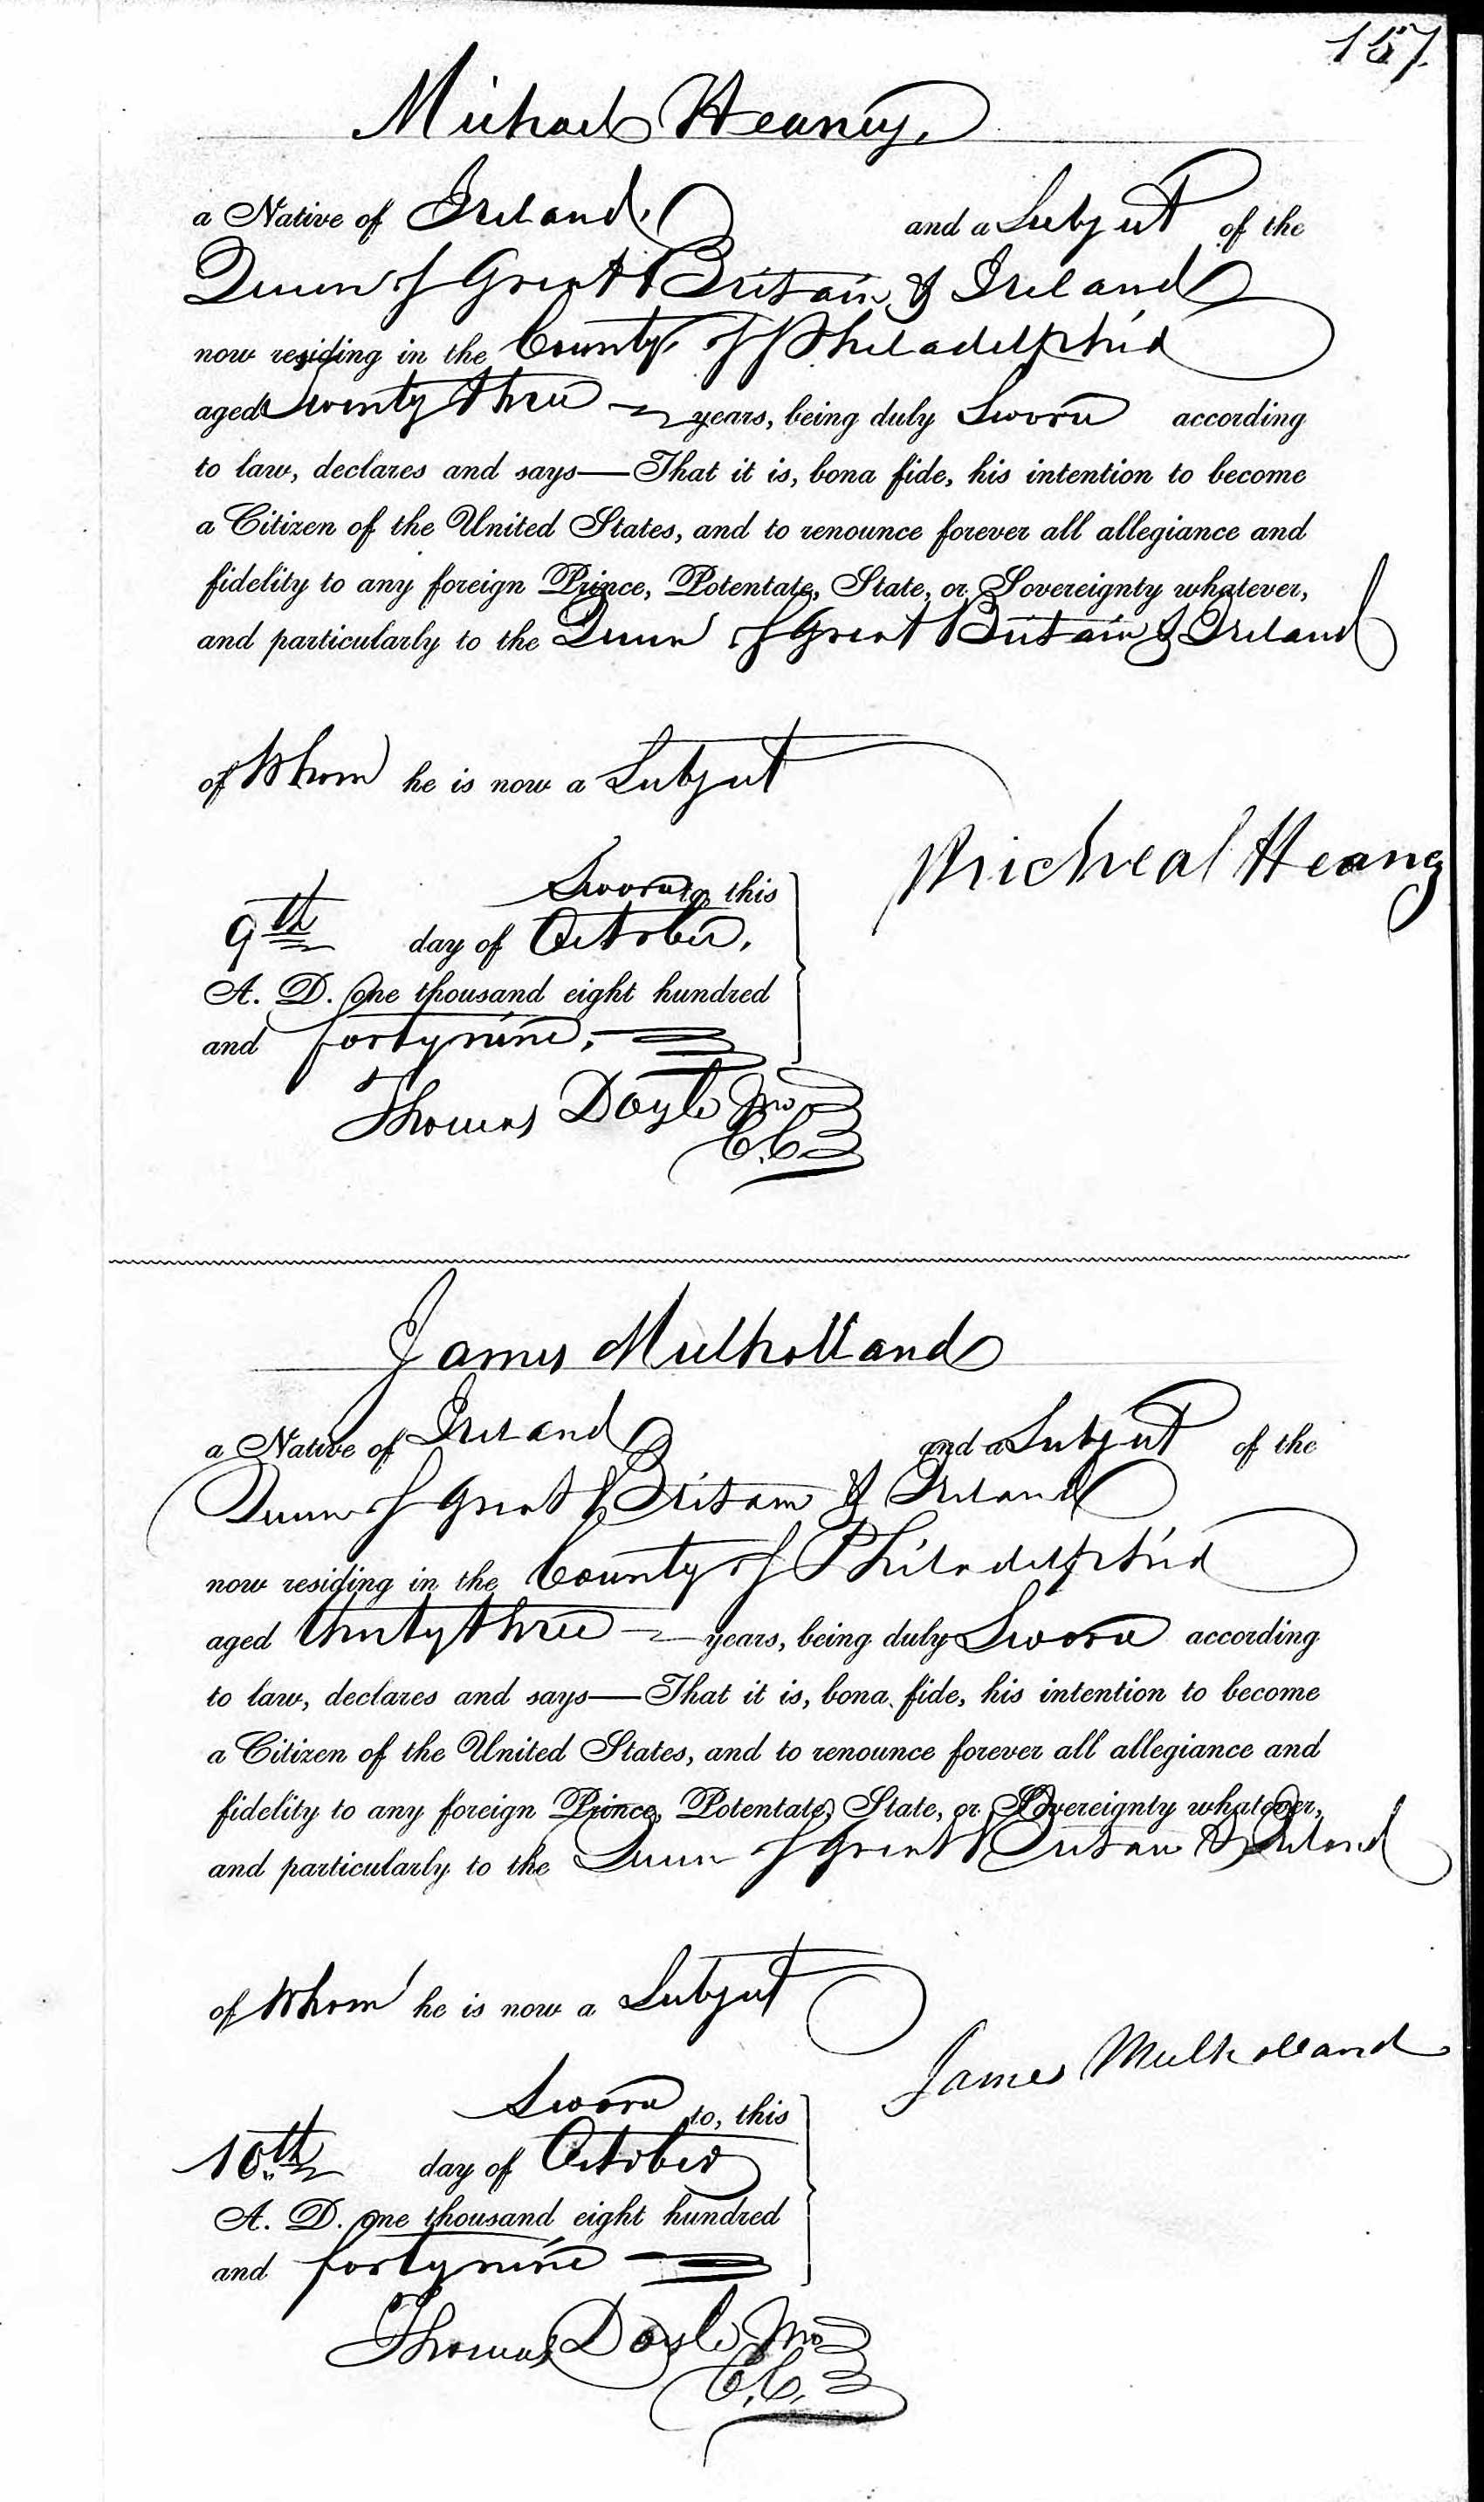 157.
Michael Heaney.
a Native of Ireland. and a Subject of the
Queen of Great Britain & Ireland
now residing in the County of Philadelphia
aged twenty three years, being duly Sworn according
to law, declares and says—That it is, bona fide, his intention to become
a Citizen of the United States, and to renounce forever all allegiance and
fidelity to any foreign Prince, Potentate, State, or Sovereignty whatever,
and particularly to the Queen of Great Britain & Ireland
of Whom he is now a Subject
Micheal Heany
Sworn to, this
9th day of October,
A. D. one thousand eight hundred
and forty nine,
Thomas Doyle
C.C.
James Mulholland
a Native of Ireland and a Subject of the
Queen of Great Britain & Ireland
now residing in the County of Philadelphia
aged thirty three years, being duly Sworn according
to law, declares and says—That it is, bona fide, his intention to become
a Citizen of the United States, and to renounce forever all allegiance and
fidelity to any foreign Prince, Potentate, State, or Sovereignty whatever,
and particularly to the Queen of Great Britain & Ireland
of Whom he is now a Subject
James Mulholland
Sworn to, this
10th day of October
A. D. one thousand eight hundred
and forty nine
Thomas Doyle
C.C.